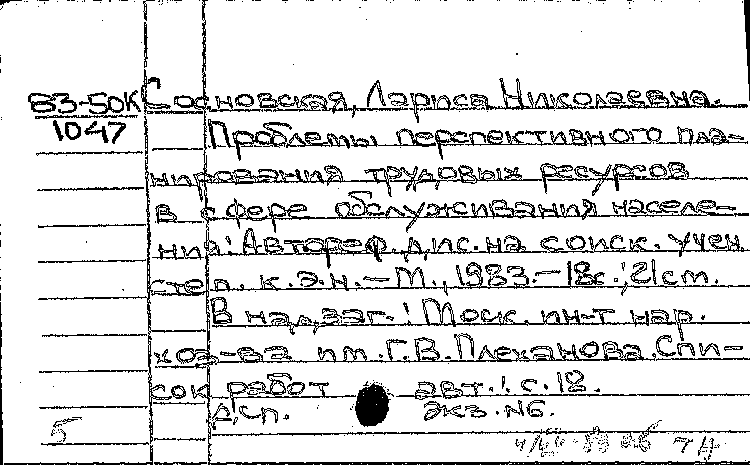 83-50К Сосновская, Лариса Николаевна.
1047 Проблемы перспективного пла-
нирования трудовых ресурсов
в сфере обслуживания населе-
ния: Автореф. дис. на соиск. учен
степ. к.э.н. – М., 1983. – 18с.; 21 см.
В надзаг.: Моск. ин-т нар.
хоз-ва им. Г.В. Плеханова. Спи-
сок работ авт.: с. 18.
Дсп. Экз. №6.
5